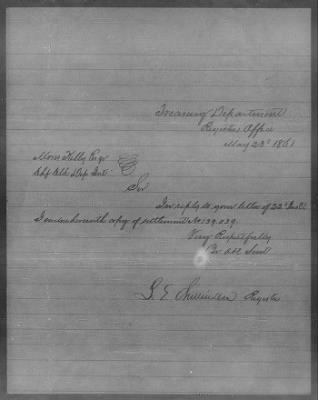 Treasury Department
Register Office
May 23d 1861
Moses Kelly Esqr
Chf Clk Dep Intr
Sir
In reply to your letter of 22d Inst
I enclose herewith copy of settlement No 139.039.
Very Respectfully
Yr Obt Servt
Register